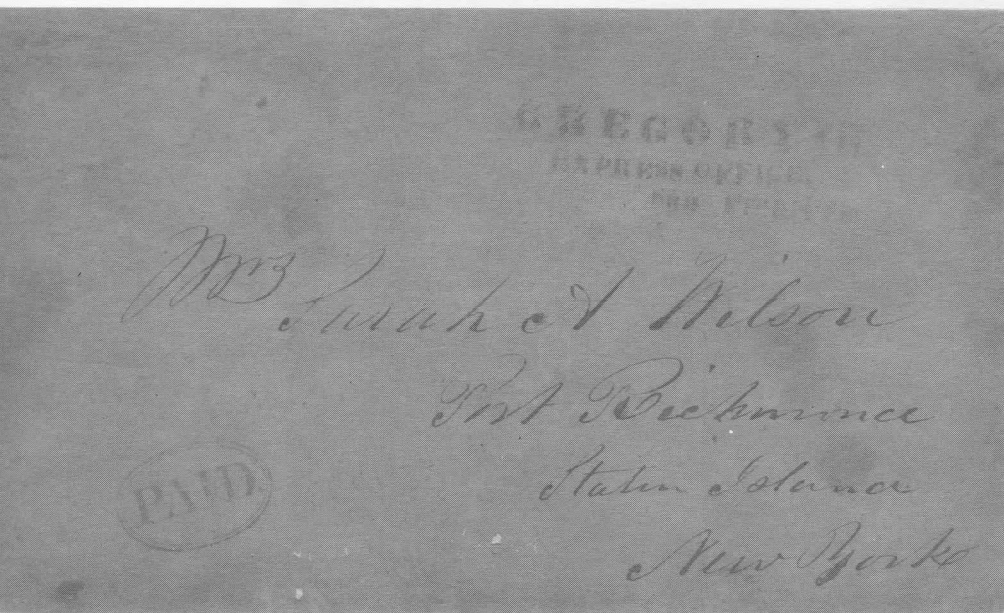 GREGORY'S
EXPRESS OFFICE,
Mrs Sarah A Wilson
Port Richmond
Staten Island
New York
PAID.